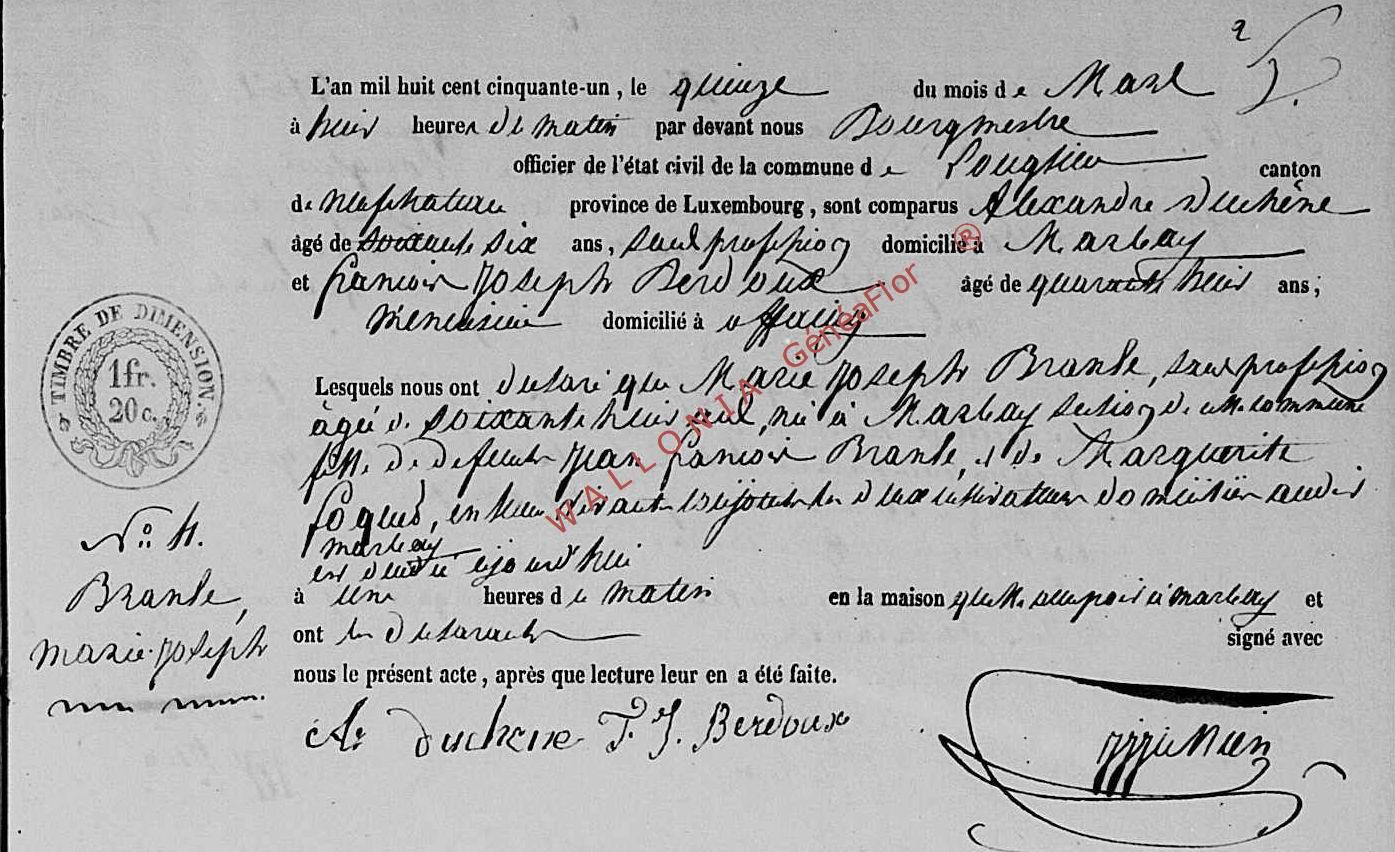 L'an mil huit cent cinquante-un, le quinze du mois de Mars
à huit heures de matin par devant nous Bourgmestre
officier de l'état civil de la commune de canton
de neufchateau province de Luxembourg, sont comparus Alexandre Duchêne
âgé de soixante six ans, sans profession domicilié à Marbay
et françois Joseph Berdoux âgé de quarante huit ans;
Menuisier domicilié à offaing
TIMBRE DE DIMENSION
1fr.
20c.
Lesquels nous ont déclaré que Marie Joseph Branle, sans profession
âgée de soixante huit ans, née à Marbay section de cette commune
fille de defunts Jean françois Branle, et de Marguerite
en leur vivant cultivateurs domiciliés audit
marbay
est décédée aujourd'hui
à une heures de matin en la maison qu'elle occupait à marbay et
ont les déclarants signé avec
nous le présent acte, après que lecture leur en a été faite.
No. 4.
Branle,
marie-joseph
Duchene F. J. Berdoux
WALLONIA GénéaFlor ®